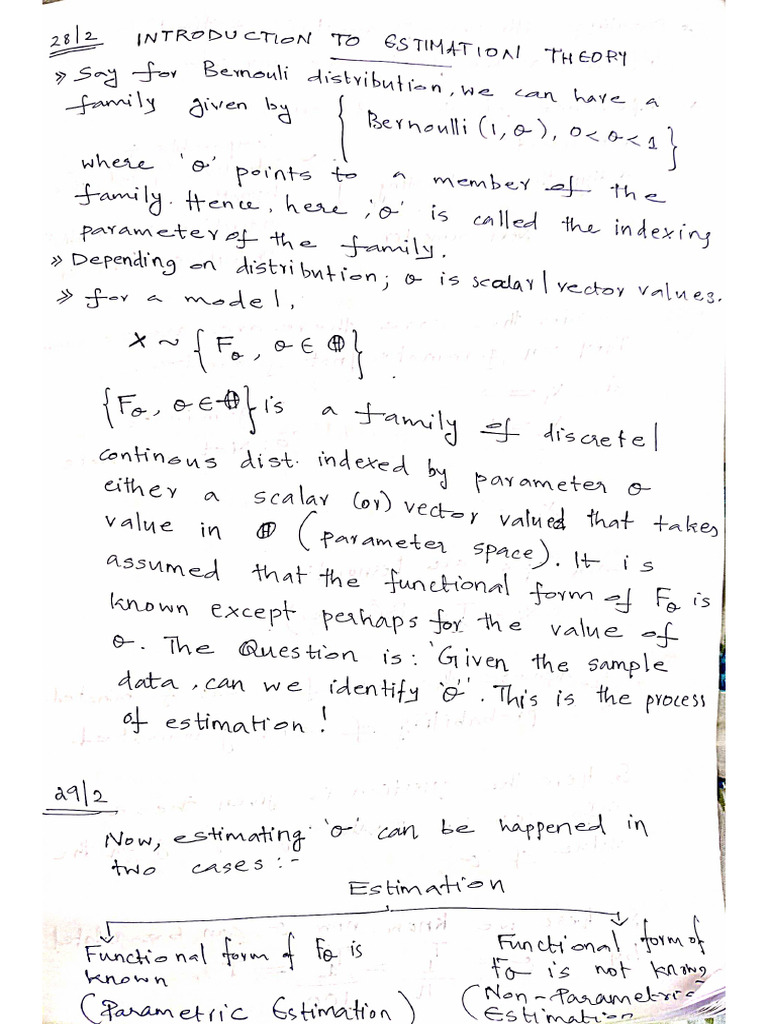 28/2 INTRODUCTION TO ESTIMATION THEORY
» Say for Bernouli distribution, we can have a
family given by { Bernoulli (1, θ), 0<θ<1 }
where 'θ' points to a member of the
family. Hence, here 'θ' is called the indexing
parameter of the family.
» Depending on distribution; θ is scalar/vector values.
» for a model,
X ~ { F_θ, θ ∈ Ⓗ }.
{F_θ, θ ∈ Ⓗ} is a family of discrete/
continous dist. indexed by parameter θ
either a scalar (or) vector valued that takes
value in Ⓗ (parameter space). It is
assumed that the functional form of F_θ is
known except perhaps for the value of
θ. The Question is: 'Given the sample
data, can we identify 'θ''. This is the process
of estimation!
29/2
Now, estimating 'θ' can be happened in
two cases :-
Estimation
Functional form of F_θ is
known
(Parametric Estimation)
Functional form of
F_θ is not known
(Non-Parametric
Estimation